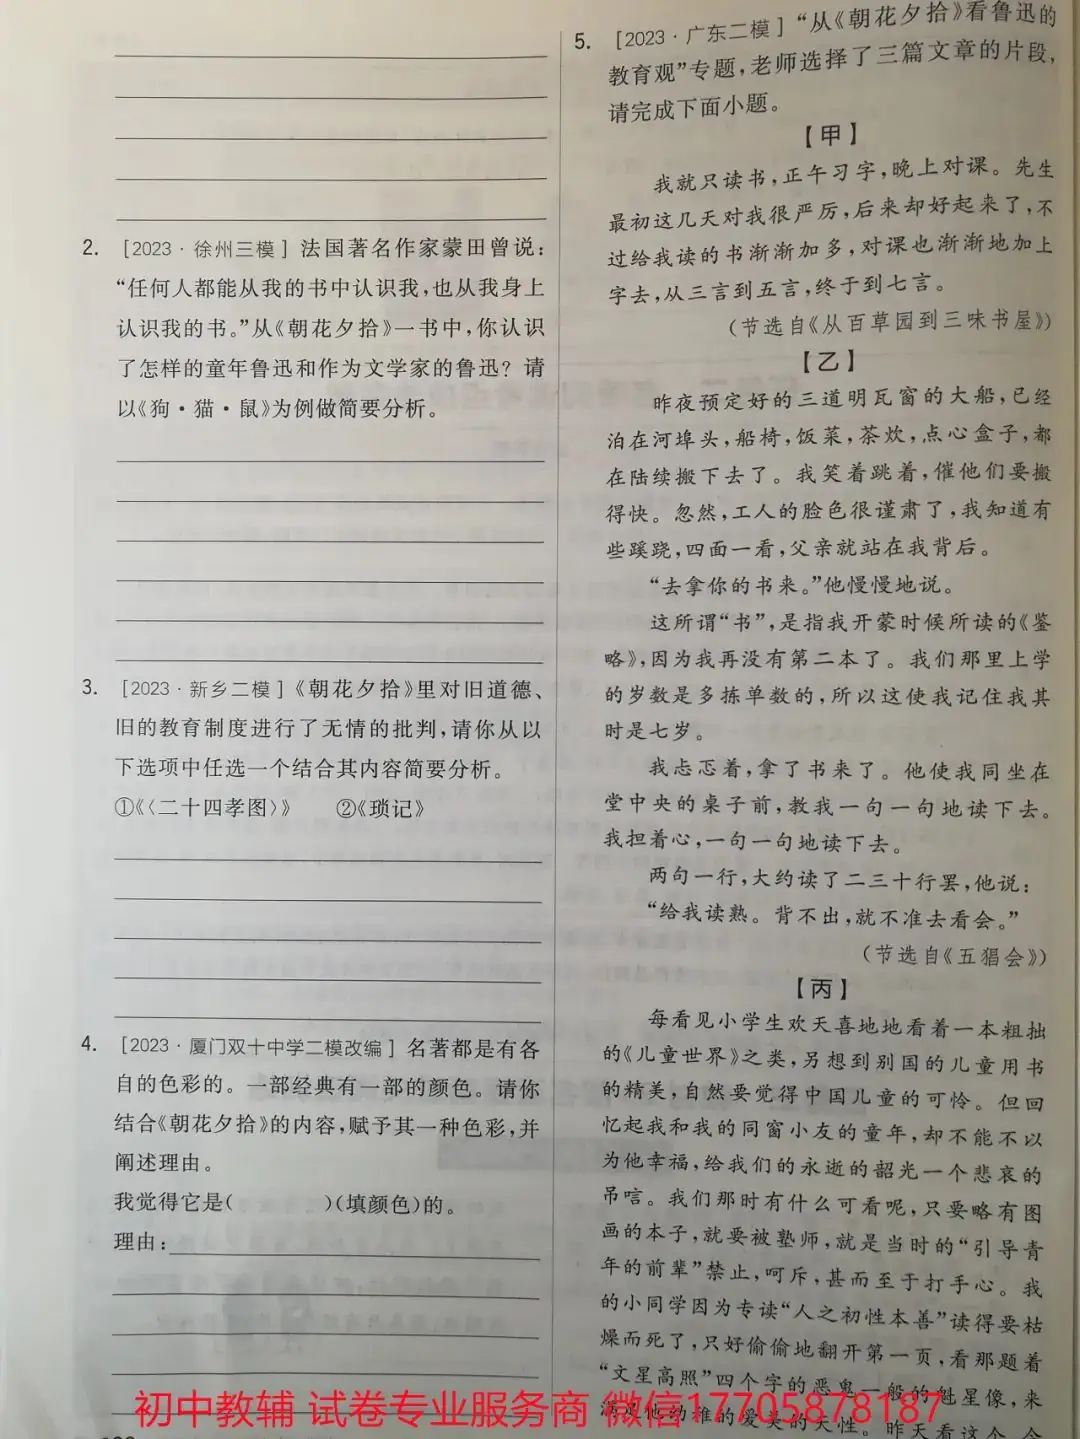 2. [2023·徐州三模] 法国著名作家蒙田曾说:
“任何人都能从我的书中认识我,也从我身上
认识我的书。”从《朝花夕拾》一书中,你认识
了怎样的童年鲁迅和作为文学家的鲁迅? 请
以《狗·猫·鼠》为例做简要分析。
3. [2023·新乡二模]《朝花夕拾》里对旧道德、
旧的教育制度进行了无情的批判,请你从以
下选项中任选一个结合其内容简要分析。
①《〈二十四孝图〉》 ②《琐记》
4. [2023·厦门双十中学二模改编] 名著都是有各
自的色彩的。一部经典有一部的颜色。请你
结合《朝花夕拾》的内容,赋予其一种色彩,并
阐述理由。
我觉得它是( )(填颜色)的。
理由:
5. [2023·广东二模] “从《朝花夕拾》看鲁迅的
教育观”专题,老师选择了三篇文章的片段,
请完成下面小题。
【甲】
我就只读书,正午习字,晚上对课。先生
最初这几天对我很严厉,后来却好起来了,不
过给我读的书渐渐加多,对课也渐渐地加上
字去,从三言到五言,终于到七言。
(节选自《从百草园到三味书屋》)
【乙】
昨夜预定好的三道明瓦窗的大船,已经
泊在河埠头,船椅,饭菜,茶炊,点心盒子,都
在陆续搬下去了。我笑着跳着,催他们要搬
得快。忽然,工人的脸色很谨肃了,我知道有
些蹊跷,四面一看,父亲就站在我背后。
“去拿你的书来。”他慢慢地说。
这所谓“书”,是指我开蒙时候所读的《鉴
略》,因为我再没有第二本了。我们那里上学
的岁数是多拣单数的,所以这使我记住我其
时是七岁。
我忐忑着,拿了书来了。他使我同坐在
堂中央的桌子前,教我一句一句地读下去。
我担着心,一句一句地读下去。
两句一行,大约读了二三十行罢,他说:
“给我读熟。背不出,就不准去看会。”
(节选自《五猖会》)
【丙】
每看见小学生欢天喜地地看着一本粗拙
的《儿童世界》之类,另想到别国的儿童用书
的精美,自然要觉得中国儿童的可怜。但回
忆起我和我的同窗小友的童年,却不能不以
为他幸福,给我们的永逝的韶光一个悲哀的
吊唁。我们那时有什么可看呢,只要略有图
画的本子,就要被塾师,就是当时的“引导青
年的前辈”禁止,呵斥,甚而至于打手心。我
的小同学因为专读“人之初性本善”读得要枯
燥而死了,只好偷偷地翻开第一页,看那题着
“文星高照”四个字的恶鬼一般的魁星像,来
满足他幼稚的爱美的天性。昨天看这个,今
初中教辅 试卷专业服务商 微信17705878187